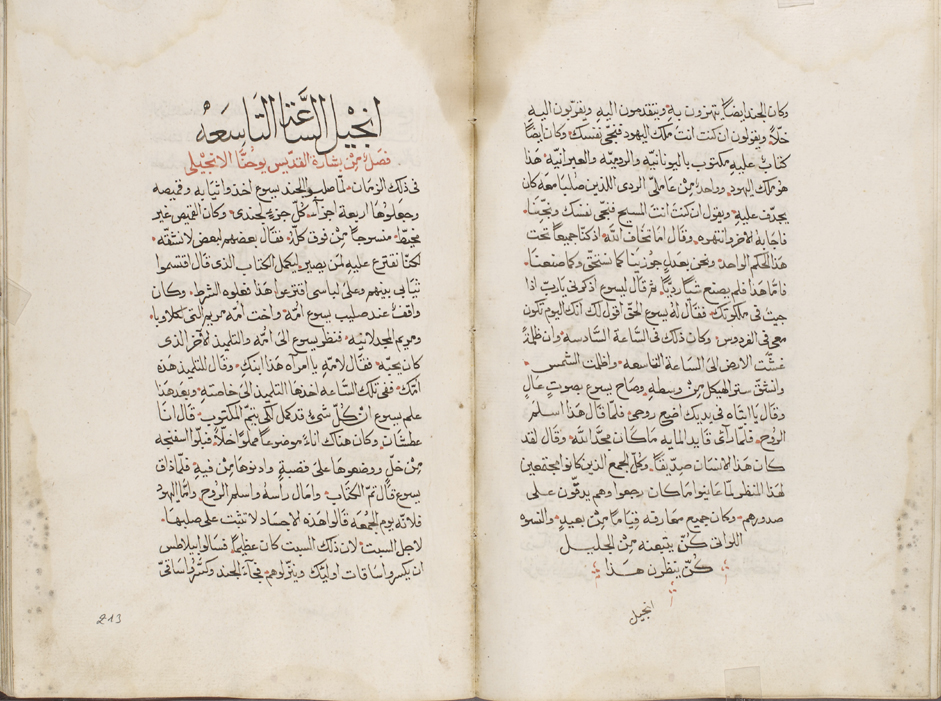 وكان الجند ايضاً يتهزون به ويتقدمون اليه ويقربون اليه
خلاً ويقولون ان كنت انت ملك اليهود فنجّي نفسك وكان ايضاً
كتابٌ عليه مكتوب باليونانيّه والروميّه والعبرانيّه هذا
هو ملك اليهود وواحد من عاملي الردى اللذين صُلبا معه كان
يجدّف عليه ويقول ان كنت انت المسيح فنجّي نفسك ونجّينا
فاجابه الآخر وانتهره وقال اما تخاف الله اذ كنّا جميعاً تحت
هذا الحكم الواحد ونحن بعدلٍ جوزينا كما نستحقّ وكما صنعنا
فامّا هذا فلم يصنع شئاً رديّاً ثم قال ليسوع اذكرني يا ربّ اذا
جيت في ملكوتك فقال له يسوع الحق اقول لك انك اليوم تكون
معي في الفردوس وكان ذلك في السّاعة السّادسه وانّ ظلمةً
غشّت الارض الى السّاعة التاسعه واظلمت الشمس
وانشقّ ستر الهيكل من وسطه وصاح يسوع بصوتٍ عالٍ
وقال يا ابتاه في يديك اضع روحي فلمّا قال هذا اسلم
الرّوح فلمّا رآى قايد المايه ما كان مجّد الله وقال لقد
كان هذا الانسان صدّيقاً وكلّ الجمع الذين كانوا مجتمعين
لهذا المنظر لمّا عاينوا ما كان رجعوا وهم يدقّون على
صدورهم وكان جميع معارفه قياماً من بعيدٍ والنسوه
اللواتي كنّ يتبعنه من الجليل
كنّ ينظرون هذا
انجيل
انجيل السّاعة التّاسعه
فصلٌ من بشارة القدّيس يوحنّا الانجيلي
في ذلك الزمان لمّا صلب الجند يسوع اخذوا ثيابه وقميصه
وجعلوها اربعة اجزآء كلّ جزءٍ لجندي وكان القميص غير
مخيّط منسوجاً من فوق كلّه فقال بعضهم لبعض لا نشقّه
لكنّا نقترع عليه لمن يصير ليكمل الكتاب الذي قال اقتسموا
ثيابي بينهم وعلى لباسي اقترعوا هذا فعلوه الشرط وكان
واقفاً عند صليب يسوع امّه واخت امّه مريم التي لكلاوبا
ومريم المجدلانيّه فنظر يسوع الى امّه والتلميذ الآخر الذي
كان يحبّه فقال لامّه يا امرأه هذا ابنك وقال للتلميذ هذه
امّك ففي تلك السّاعة اخذها التلميذ الى خاصّته وبعد هذا
علم يسوع انّ كلّ شيءٍ قد كمل لكي يتمّ المكتوب قال انا
عطشان وكان هناك اناءً موضوعاً مملوّاً خلاً فبلّوا السفنجه
من خلٍّ ووضعوها على قصبةٍ وادنوها من فيه فلمّا ذاق
يسوع قال تمّ الكتاب وامال رأسه واسلم الرّوح وامّا اليهود
فلانّه يوم الجمعة قالوا هذه الاجساد لا تثبت على صليبها
لاجل السبت لان ذلك السبت كان عظيماً فسالوا بيلاطس
ان يكسروا ساقات اوليك وينزلوهم فجآء الجند وكسّروا ساقيّ
213